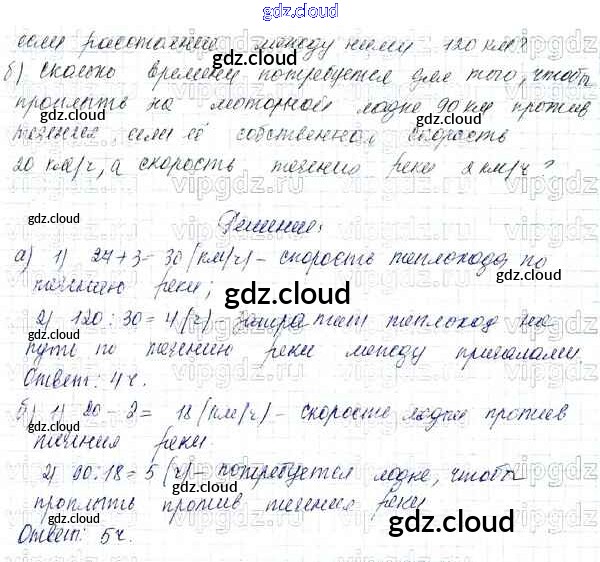 gdz.cloud
если расстояние между ними 120 км?
б) Сколько времени потребуется для того, чтобы
проплыть на моторной лодке 90 км против
течения, если её собственная скорость
20 км/ч, а скорость течения реки 2 км/ч?
Решение:
а) 1) 27 + 3 = 30 (км/ч) – скорость теплохода по
течению реки;
2) 120 : 30 = 4 (ч) затратит теплоход на
путь по течению реки между причалами
Ответ: 4 ч.
б) 1) 20 – 2 = 18 (км/ч) – скорость лодки против
течения реки.
2) 90 : 18 = 5 (ч) – потребуется лодке, чтобы
проплыть против течения реки
Ответ: 5 ч.
gdz.cloud